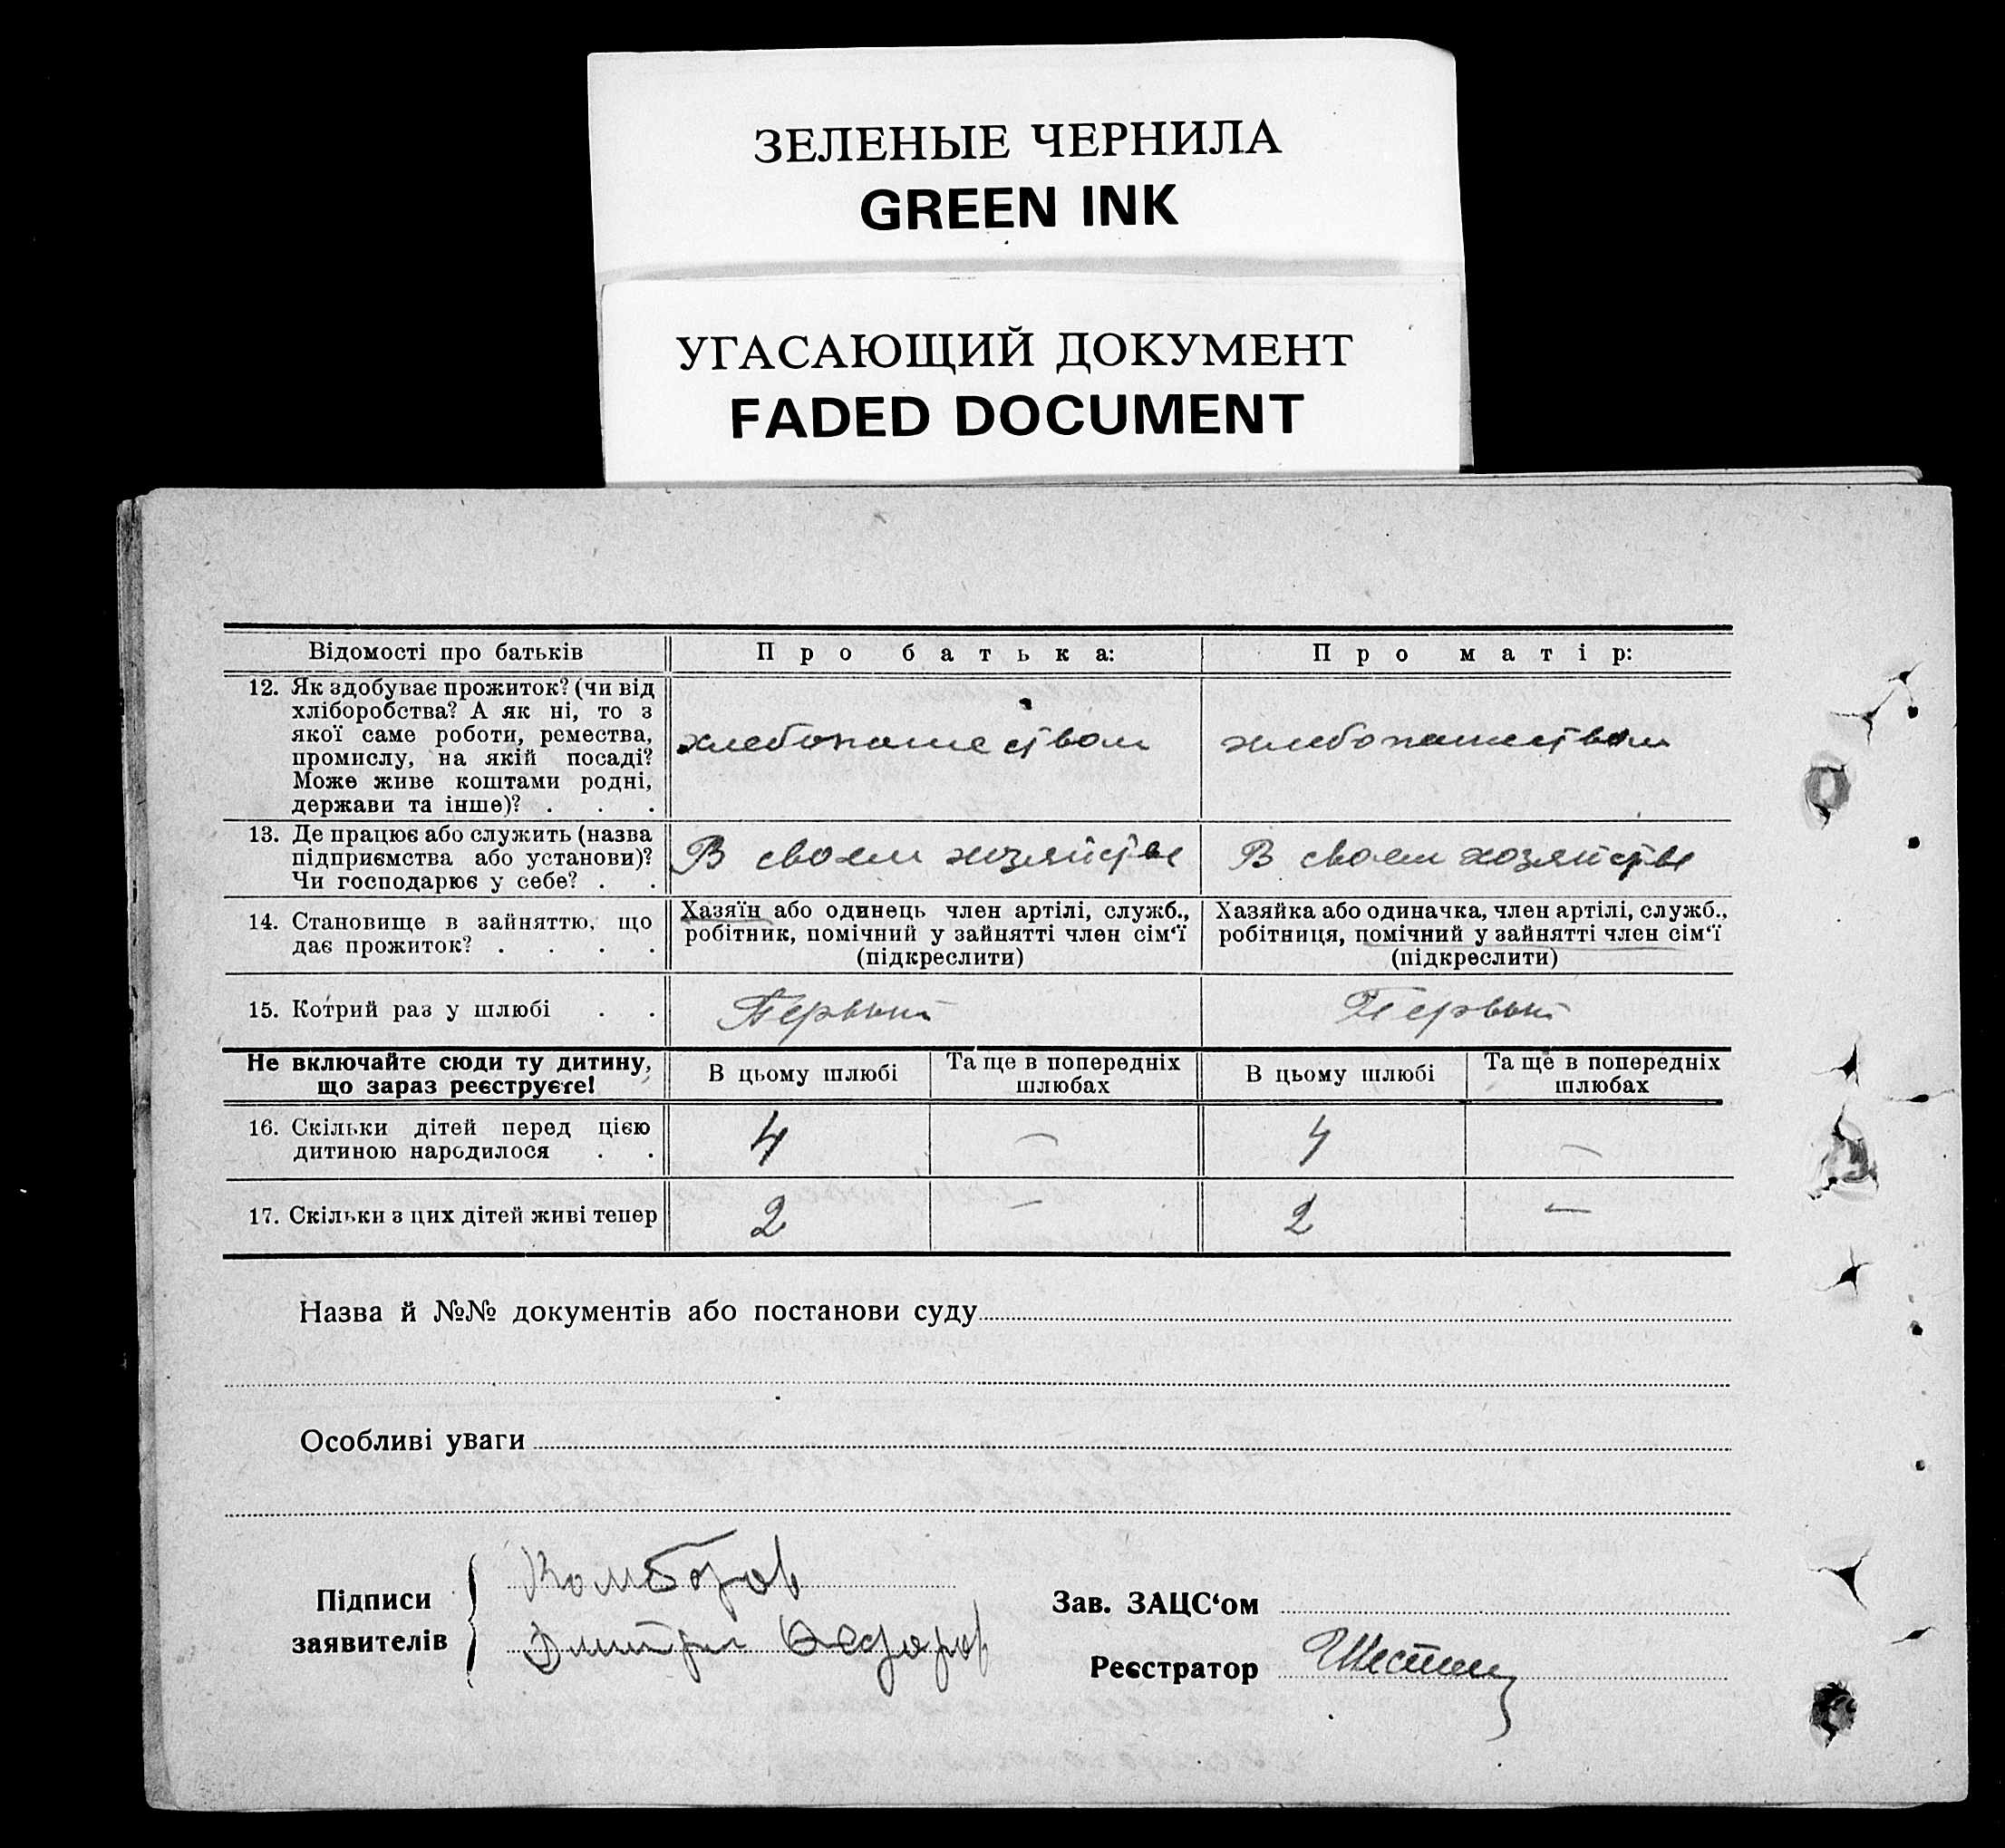 ЗЕЛЕНЫЕ ЧЕРНИЛА
GREEN INK
УГАСАЮЩИЙ ДОКУМЕНТ
FADED DOCUMENT
Відомості про батьків
Про батька:
Про матір:
12. Як здобуває прожиток? (чи від
хліборобства? А як ні, то з
якої саме роботи, ремества,
промислу, на якій посаді?
Може живе коштами родні,
держави та інше)? . . .
хлебопашеством
хлебопашеством
13. Де працює або служить (назва
підприємства або установи)?
Чи господарює у себе? . .
В своем хозяйстве
В своем хозяйстве
14. Становище в зайняттю, що
дає прожиток? . . . .
Хазяїн або одинець член артілі, служб.,
робітник, помічний у зайнятті член сім‘ї
(підкреслити)
Хазяйка або одиначка, член артілі, служб.,
робітниця, помічний у зайнятті член сім‘ї
(підкреслити)
15. Котрий раз у шлюбі . .
Первый
Первый
Не включайте сюди ту дитину,
що зараз реєструєте!
В цьому шлюбі
Та ще в попередніх
шлюбах
В цьому шлюбі
Та ще в попередніх
шлюбах
16. Скільки дітей перед цією
дитиною народилося . .
4
—
4
—
17. Скільки з цих дітей живі тепер
2
—
2
—
Назва й №№ документів або постанови суду
Особливі уваги
Підписи
заявителів
Комборов
Дмитри Федоров
Зав. ЗАЦС‘ом
Реєстратор